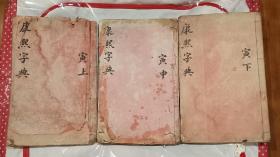 康熙字典
寅上
康熙字典
寅中
康熙字典
寅下